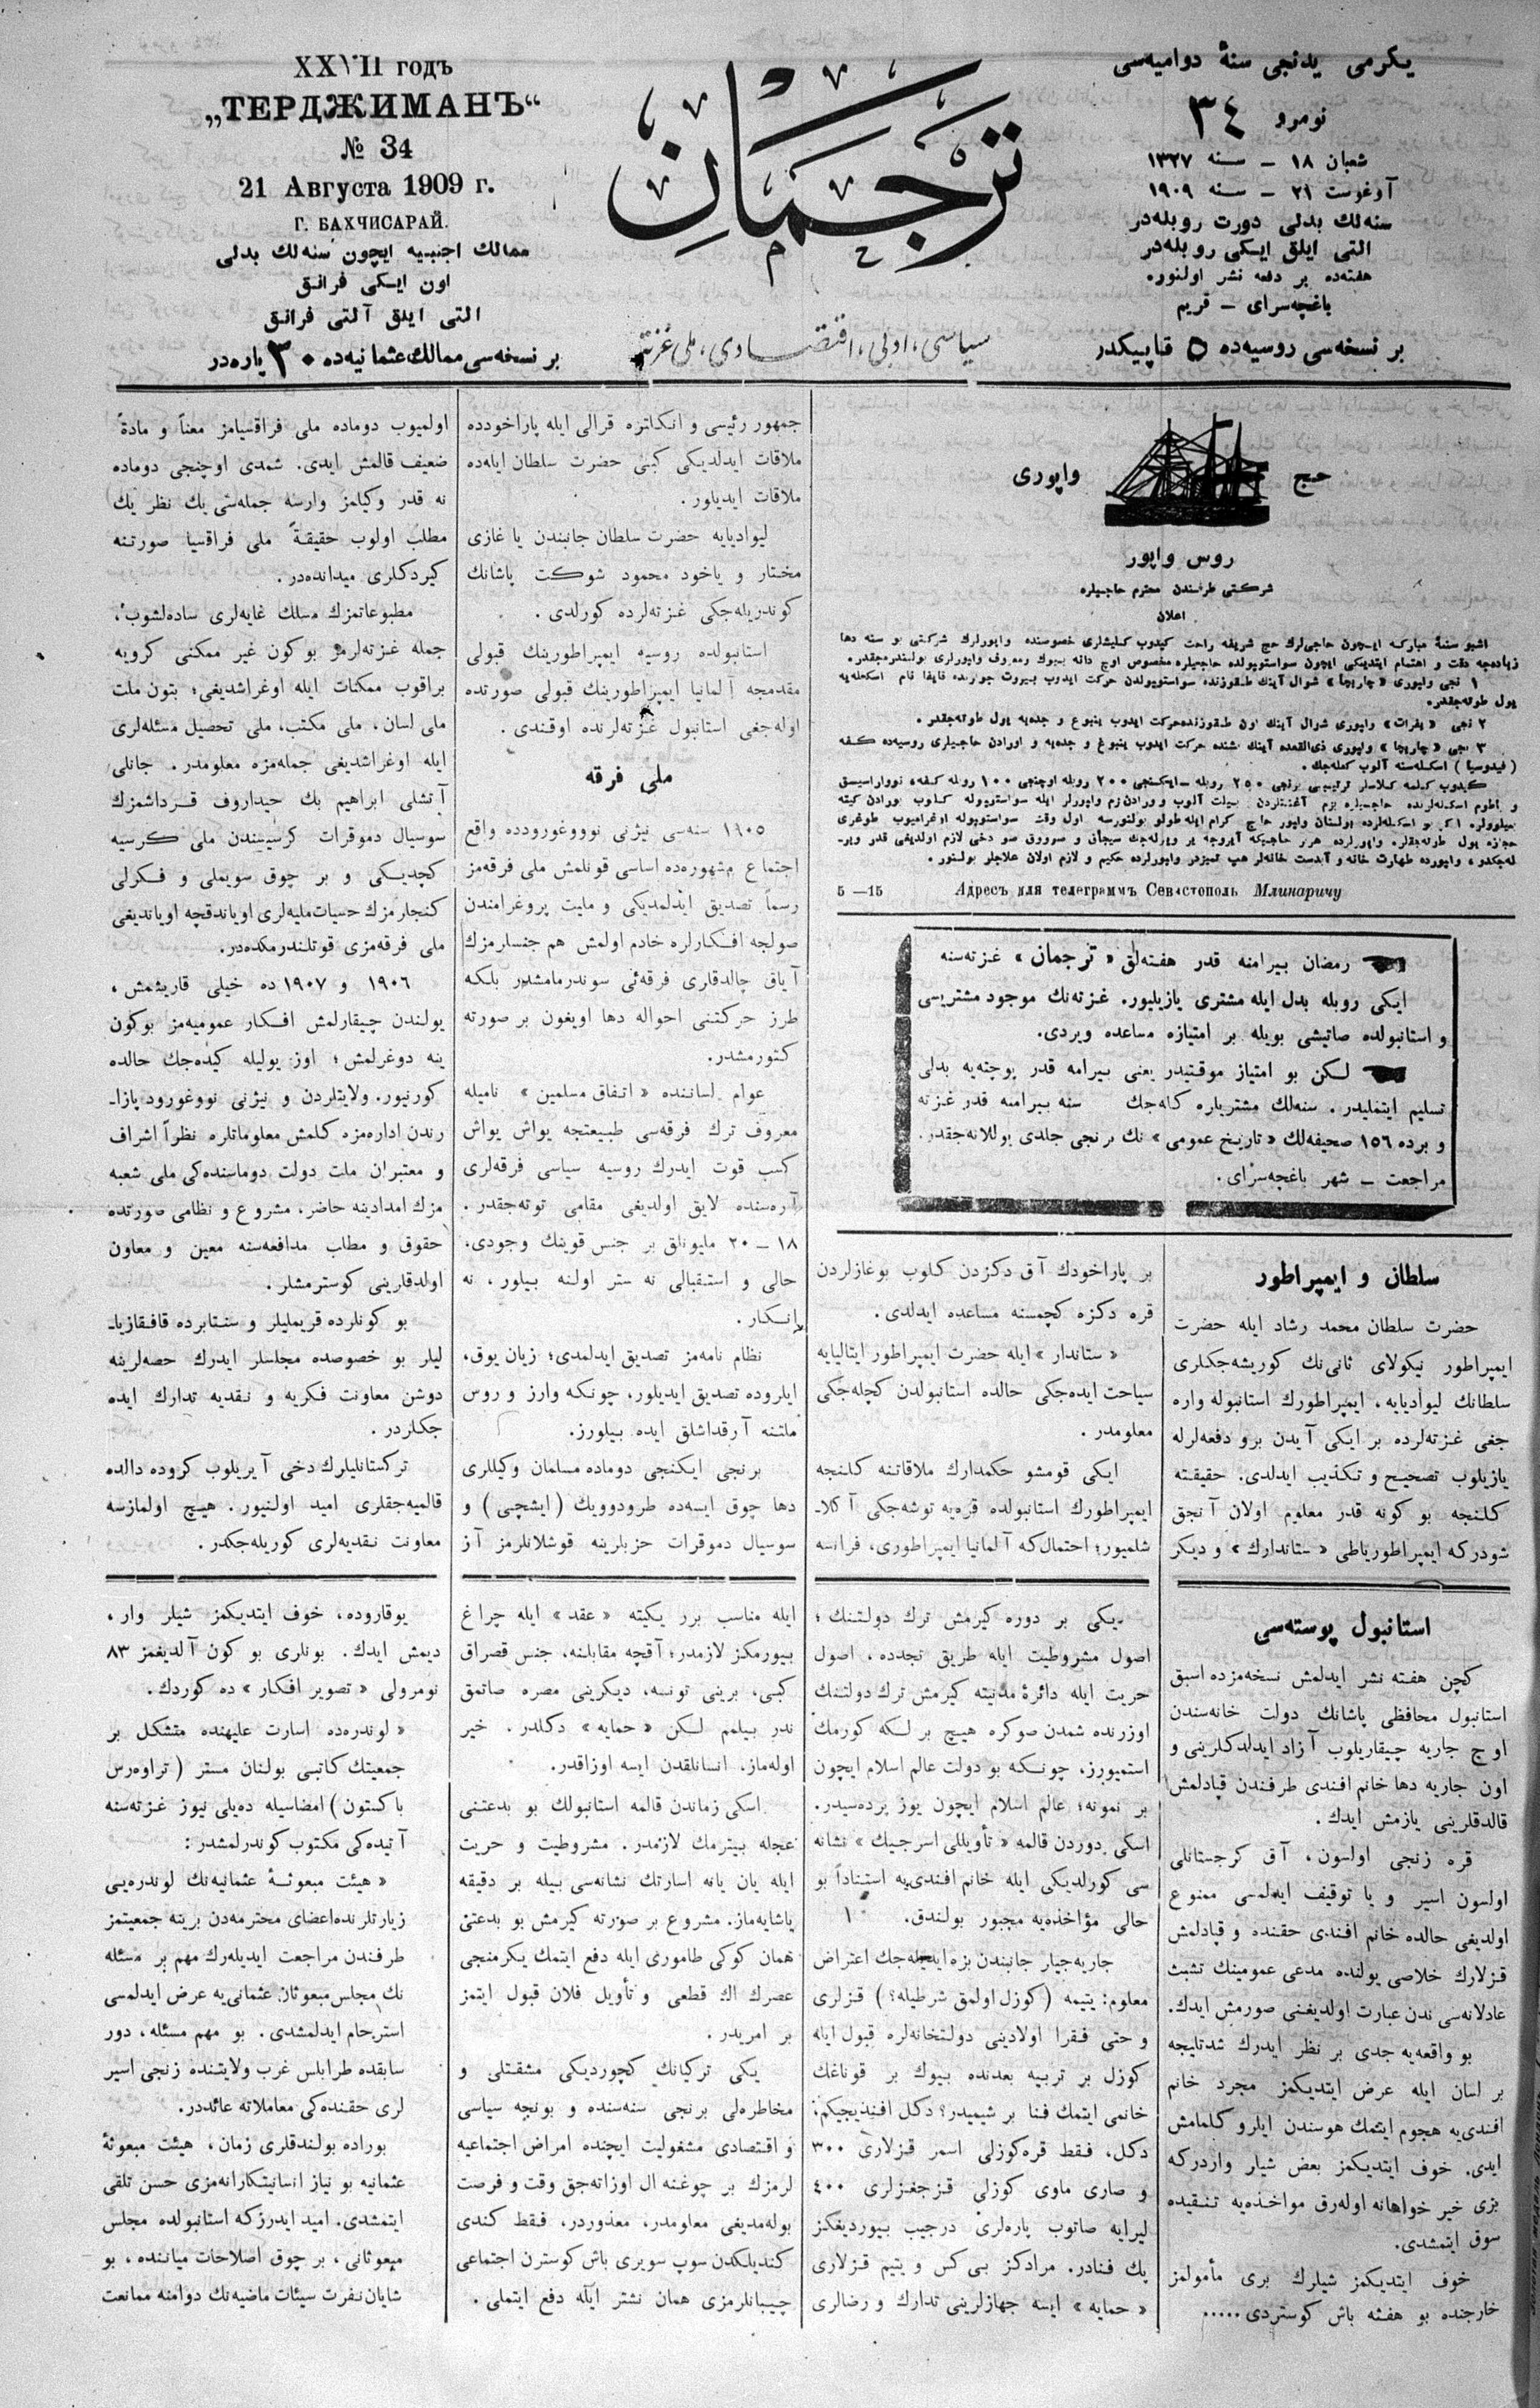 يكرمى يدنجى سنهٔ دواميه‌سى
نومرو ٣٤
شعبان ١٨ – سنه ١٣٢٧
آوغوست ٢١ – سنه ١٩٠٩
سنه‌لك بدلى دورت روبله‌در
التى ايلق ايكى روبله‌در
هفته‌ده بر دفعه نشر اولنوره
باغچه‌سراى – قريم
بر نسخه‌سى روسيه‌ده ٥ قاپيكدر
ترجمان
سياسى، ادبى، اقتصادى، ملى غزته
XXVII годъ
„ТЕРДЖИМАНЪ“
№ 34
21 Августа 1909 г.
Г. БАХЧИСАРАЙ.
ممالك اجنبيه ايچون سنه‌لك بدلى
اون ايكى فرانق
التى ايلق آلتى فرانق
بر نسخه‌سى ممالك عثمانيه‌ده ٣٠ پاره‌در
حج واپورى
روس واپور
شركتى طرفندن محترم حاجيلره
اعلان
اشبو سنهٔ مباركه ايچون حاجى‌لرك حج شريفه راحت كيدوب كليشلرى خصوصنده واپورلرك شركتى بو سنه دها
زياده‌جه دقت و اهتمام ايتديكى ايچون سواستوپولده حاجيلره مخصوص اوچ دانه بيوك ومعروف واپورلرى بولندرمه‌جقدر.
١ نجى واپورى «چاريچا» شوال آينك طقوزنده سواستوپولدن حركت ايدوب بيروت جورنده قايفا نام اسكله‌يه
يول طوته‌جقدر.
٢ نجى «يفرات» واپورى شوال آينك اون طقوزنده‌حركت ايدوب ينبوع و جده‌يه يول طوته‌جقدر.
٣ نجى «چاريچا» واپورى ذى‌القعده آينك بشنده حركت ايدوب ينبوغ و جده‌يه و اورادن حاجيلرى روسيه‌ده كفه
(فيدوسيا) اسكله‌سنه آلوب كله‌جك.
كيدوب كلمه كلاسلر ترتيبى برنجى ٢٥٠ روبله – ايكنجى ٢٠٠ روبله اوچنجى ١٠٠ روبله كفه، نوواراسيسق
و باطوم اسكله‌لرنده حاجيلره بزم آغنتلردن بيلت آلوب و اورادن بزم واپورلر ايله سواستوپوله كلوب بورادن كيته
5 —15 Адресъ для телеграммъ Севастополь Млинаричу
رمضان بيرامنه قدر هفته‌لق «ترجمان» غزته‌سنه
ايكى روبله بدل ايله مشترى يازيليور. غزته‌نك موجود مشتريسى
و استانبولده صاتيشى بويله بر امتيازه مساعده ويردى.
لكن بو امتياز موقتيدر يعنى بيرامه قدر بوجته‌يه بدلى
تسليم ايتمليدر. سنه‌لك مشتريلره كله‌جك سنه بيرامنه قدر غزته
و برده ١٥٦ صحيفه‌لك «تاريخ عمومى» نك برنجى جلدى يوللانه‌جقدر.
مراجعت – شهر باغچه‌سراى.
سلطان و ايمپراطور
حضرت سلطان محمد رشاد ايله حضرت
ايمپراطور نيكولاى ثانى‌نك كوريشه‌جكلرى
سلطانك ليواديايه، ايمپراطورك استانبوله واره
جغى غزته‌لرده بر ايكى آيدن برو دفعه‌لرله
يازيلوب تصحيح و تكذيب ايدلدى. حقيقته
كلنجه بو كونه قدر معلوم اولان آنجق
شودركه ايمپراطورياطى «ستاندارك» و ديكر
بر پاراخودك آق دكزدن كلوب بوغازلردن
قره دكزه كچمسنه مساعده ايدلدى.
«ستاندار» ايله حضرت ايمپراطور ايتاليايه
سياحت ايده‌جكى حالده استانبولدن كچله‌جكى
معلومدر.
ايكى قومشو حكمدارك ملاقاتنه كلنجه
ايمپراطورك استانبولده قره‌يه توشه‌جكى آكلا-
شلميور؛ احتمال‌كه آلمانيا ايمپراطورى، فرانسه
جمهور رئيسى و انكلتره قرالى ايله پاراخودده
ملاقات ايدلديكى كبى حضرت سلطان ايله‌ده
ملاقات ايديلور.
ليواديايه حضرت سلطان جانبندن يا غازى
مختار و ياخود محمود شوكت پاشانك
كوندريله‌جكى غزته‌لرده كورلدى.
استانبولده روسيه ايمپراطورينك قبولى
مقدمجه آلمانيا ايمپراطورينك قبولى صورتده
اوله‌جغى استانبول غزته‌لرنده اوقندى.
ملى فرقه
١٩٠٥ سنه‌سى نيژنى نوووغورودده واقع
اجتماع مشهورده اساسى قونلمش ملى فرقه‌مز
رسماً تصديق ايدلمديكى و مليت پروغرامندن
صولجه افكارلره خادم اولمش هم جنسلرمزك
آياق چالدقلرى فرقه‌ئى سوندرمامشدر بلكه
طرز حركتنى احواله دها اويغون بر صورته
كتورمشدر.
عوام لساننده «اتفاق مسلمين» ناميله
معروف ترك فرقه‌سى طبيعتجه يواش يواش
كسب قوت ايدرك روسيه سياسى فرقه‌لرى
آره‌سنده لايق اولديغى مقامى توته‌جقدر.
١٨ – ٢٠ مليونلق بر جنس قوينك وجودى،
حالى و استقبالى نه ستر اولنه بيلور، نه
انكار.
نظام نامه‌مز تصديق ايدلمدى؛ زيان يوق،
ايلروده تصديق ايديلور، چونكه وارز و روس
ملتنه آرقداشلق ايده بيلورز.
برنجى ايكنجى دوماده مسلمان وكيللرى
دها چوق ايسه‌ده طرودوويك (ايشچى) و
سوسيال دموقرات حزبلرينه قوشلانلرمز آز
اولميوب دوماده ملى فراقسيامز معناً و مادةً
ضعيف قالمش ايدى. شمدى اوچنجى دوماده
نه قدر وكيلمز وارسه جمله‌سى يك نظر يك
مطلب اولوب حقيقةً ملى فراقسيا صورتنه
كيردكلرى ميدانده‌در.
مطبوعاتمزك مسلك غايه‌لرى ساده‌لشوب،
جمله غزته‌لرمز بوكون غير ممكنى كروبه
براقوب ممكنات ايله اوغراشديغى؛ بتون ملت
ملى لسان، ملى مكتب، ملى تحصيل مسئله‌لرى
ايله اوغراشديغى جمله‌مزه معلومدر. جانلى
آتشلى ابراهيم بك حيداروف قرداشمزك
سوسيال دموقرات كرسيسندن ملى كرسيه
كچديكى و بر چوق سويملى و فكرلى
كنجلرمزك حسيات مليه‌لرى اوياندقچه اوياندىغى
ملى فرقه‌مزى قوتلندرمكده‌در.
١٩٠٦ و ١٩٠٧ ده خيلى قاريشمش،
يولندن چيقارلمش افكار عموميه‌مز بوكون
ينه دوغرلمش؛ اوز يوليله كيده‌جك حالده
كورنيور. ولايتلردن و نيژنى نووغورود پازا-
رندن اداره‌مزه كلمش معلوماتلره نظراً اشراف
و معتبران ملت دولت دوماسنده‌كى ملى شعبه
مزك امدادينه حاضر، مشروع و نظامى صورتده
حقوق و مطلب مدافعه‌سنه معين و معاون
اولدقلرينى كوسترمشلر.
بو كونلرده قريمليلر و سنتابرده قافقازيا-
ليلر بو خصوصده مجلسلر ايدرك حصه‌لرينه
دوشن معاونت فكريه و نقديه تدارك ايده
جكلردر.
تركستانليلرك دخى آيريلوب كروده دالده
قالميه‌جقلرى اميد اولنيور. هيچ اولمازسه
معاونت نقديه‌لرى كوريله‌جكدر.
استانبول پوسته‌سى
كچن هفته نشر ايدلمش نسخه‌مزده اسبق
استانبول محافظى پاشانك دولت خانه‌سندن
اوچ جاريه چيقاريلوب آزاد ايدلدكلرينى و
اون جاريه دها خانم افندى طرفندن قپادلمش
قالدقلرينى يازمش ايدك.
قره زنجى اولسون، آق كرجستانلى
اولسون اسير و يا توقيف ايدلمسى ممنوع
اولديغى حالده خانم افندى حقنده و قپادلمش
قزلارك خلاصى يولنده مدعى عمومينك تشبث
عادلانه‌سى ندن عبارت اولديغنى صورمش ايدك.
بو واقعه‌يه جدى بر نظر ايدرك شدتليجه
بر لسان ايله عرض ايتديكمز مجرد خانم
افندى‌يه هجوم ايتمك هوسندن ايلرو كلمامش
ايدى. خوف ايتديكمز بعض شيلر واردركه
بزى خير خواهانه اوله‌رق مواخذه‌يه تنقيده
سوق ايتمشدى.
خوف ايتديكمز شيلرك برى مأمولمز
خارجنده بو هفته باش كوستردى.....
يكى بر دوره كيرمش ترك دولتنك؛
اصول مشروطيت ايله طريق تجدده، اصول
حريت ايله دائرهٔ مدنيته كيرمش ترك دولتنك
اوزرنده شمدن صوكره هيچ بر لكه كورمك
استميورز، چونكه بو دولت عالم اسلام ايچون
بر نمونه؛ عالم اسلام ايچون يوز پرده‌سيدر.
اسكى دوردن قالمه «تأويللى اسرجيك» نشانه
سى كورلديكى ايله خانم افندى‌يه استناداً بو
حالى مؤاخذه‌يه مجبور بولندق.
جاريه‌جيلر جانبندن بزه ايديله‌جك اعتراض
معلوم: يتيمه (كوزل اولمق شرطيله؟) قزلرى
و حتى فقرا اولادينى دولتخانه‌لره قبول ايله
كوزل بر تربيه بعدنده بيوك بر قوناغك
خانمى ايتمك فنا بر شيميدر؟ دكل افنديجيكم؛
دكل، فقط قره‌كوزلى اسمر قزلارى ٣٠٠
و صارى ماوى كوزلى قزجغزلرى ٤٠٠
ليرايه صاتوب پاره‌لرى درجيب بيورديغكز
پك فنادر. مرادكز بى كس و يتيم قزلارى
«حمايه» ايسه جهازلرينى تدارك و رضالرى
ايله مناسب برر يكيته «عقد» ايله چراغ
بيورمكز لازمدر؛ آقچه مقابلنه، جنس قصراق
كبى، برينى تونسه، ديكرينى مصره صاتمق
ندر بيلمم لكن «حمايه» دكلدر. خير
اوله‌ماز. انسانلقدن ايسه اوزاقدر.
اسكى زماندن قالمه استانبولك بو بدعتنى
عجله بيترمك لازمدر. مشروطيت و حريت
ايله يان يانه اسارتك نشانه‌سى بيله بر دقيقه
ياشايه‌ماز. مشروع بر صورته كيرمش بو بدعتى
همان كوكى طامورى ايله دفع ايتمك يكرمنجى
عصرك اك قطعى و تأويل فلان قبول ايتمز
بر امريدر.
يكى تركيانك كچورديكى مشقتلى و
مخاطره‌لى برنجى سنه‌سنده و بونجه سياسى
و اقتصادى مشغوليت ايچنده امراض اجتماعيه
لرمزك بر چوغنه ال اوزاته‌جق وقت و فرصت
بوله‌مديغى معلومدر، معذوردر، فقط كندى
كنديلكدن سوپ سويرى باش كوسترن اجتماعى
چيبانلرمزى همان نشتر ايله دفع ايتملى.
يوقاروده، خوف ايتديكمز شيلر وار،
ديمش ايدك. بونلرى بو كون آلديغمز ٨٣
نومرولى «تصوير افكار» ده كوردك.
«لوندره‌ده اسارت عليهنده متشكل بر
جمعيتك كاتبى بولنان مستر (تراوه‌رس
باكستون) امضاسيله ده‌يلى نيوز غزته‌سنه
آتيده‌كى مكتوب كوندرلمشدر:
«هيئت مبعوثهٔ عثمانيه‌نك لوندره‌يى
زيارتلرنده‌اعضاى محترمه‌دن برينه جمعيتمز
طرفندن مراجعت ايديله‌رك مهم بر مسئله
نك مجلس مبعوثان عثمانى‌يه عرض ايدلمسى
استرحام ايدلمشدى. بو مهم مسئله، دور
سابقده طرابلس غرب ولايتنده زنجى اسير
لرى حقنده‌كى معاملاته عائددر.
بوراده بولندقلرى زمان، هيئت مبعوثهٔ
عثمانيه بو نياز انسانيتكارانه‌مزى حسن تلقى
ايتمشدى. اميد ايدرزكه استانبولده مجلس
مبعوثانى، بر چوق اصلاحات مياننده، بو
شايان نفرت سيئات ماضيه‌نك دوامنه ممانعت